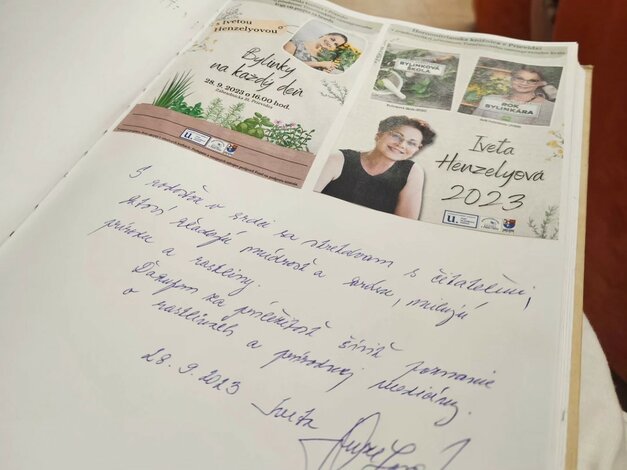 s Ivetou
Henzelyovou
Bylinky
na každý deň
28. 9. 2023 o 16.00 hod.
Hornonitrianska knižnica v Prievidzi
BYLINKOVÁ
ŠKOLA
ROK
BYLINKÁRA
Iveta
Henzelyová
2023
u.
S radosťou v srdci sa stretávam s čitateľmi,
ktorí hľadajú múdrosť a milujú
prírodu a rastliny.
Ďakujem za príležitosť šíriť poznanie
o rastlinách a prírodnej medicíny.
28. 9. 2023 Iveta